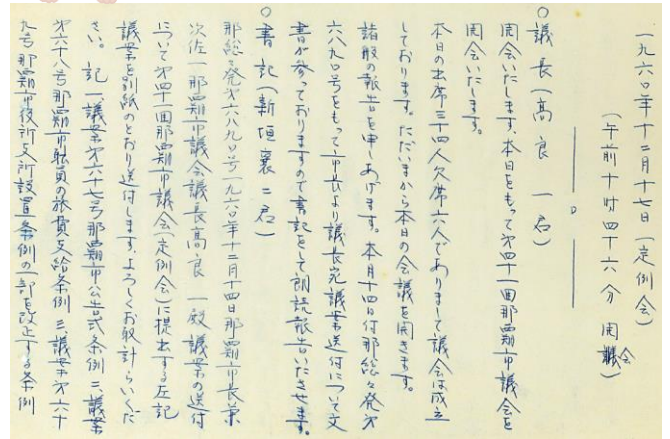 一九六〇年十二月十七日(定例会)
(午前十时四十六分 開議会)
〇議長(髙良一君)
開会いたします、本日をもって第四十一回那覇市議会を
開会いたします。
本日の出席二十四人欠席六人でありまして議会は成立
しております。ただいまから本日の会議を開きます。
諸般の報告を申しあげます。本月十四日付那総々発第
六八九〇号をもって市長より議長宛議案送付について文
書が参っておりますので書記をして朗読報告いたさせます。
〇書記(新垣襄二君)
那総々発第六八九〇号一九六〇年十二月十四日那覇市長兼
次佐一那覇市議会議長髙良一殿議案の送付
について第四十一回那覇市議会(定例会)に提出する左記
議案を別紙のとおり送付します、よろしくお取計らいくだ
さい。記一、議案第六十七号那覇市公告式条例二、議案
第六十八号那覇市職員の旅費支給条例三、議案第六十
九号那覇市役所支所設置条例の一部を改正する条例